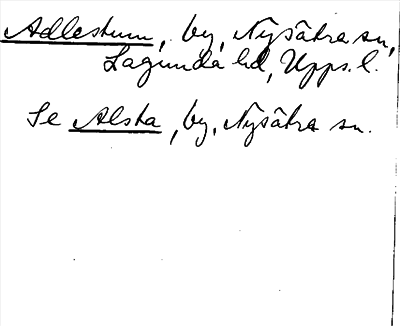 Adlestum, by, Nysätra sn,
Lagunda hd, Upps. l.
Se Alsta, by, Nysätra sn.